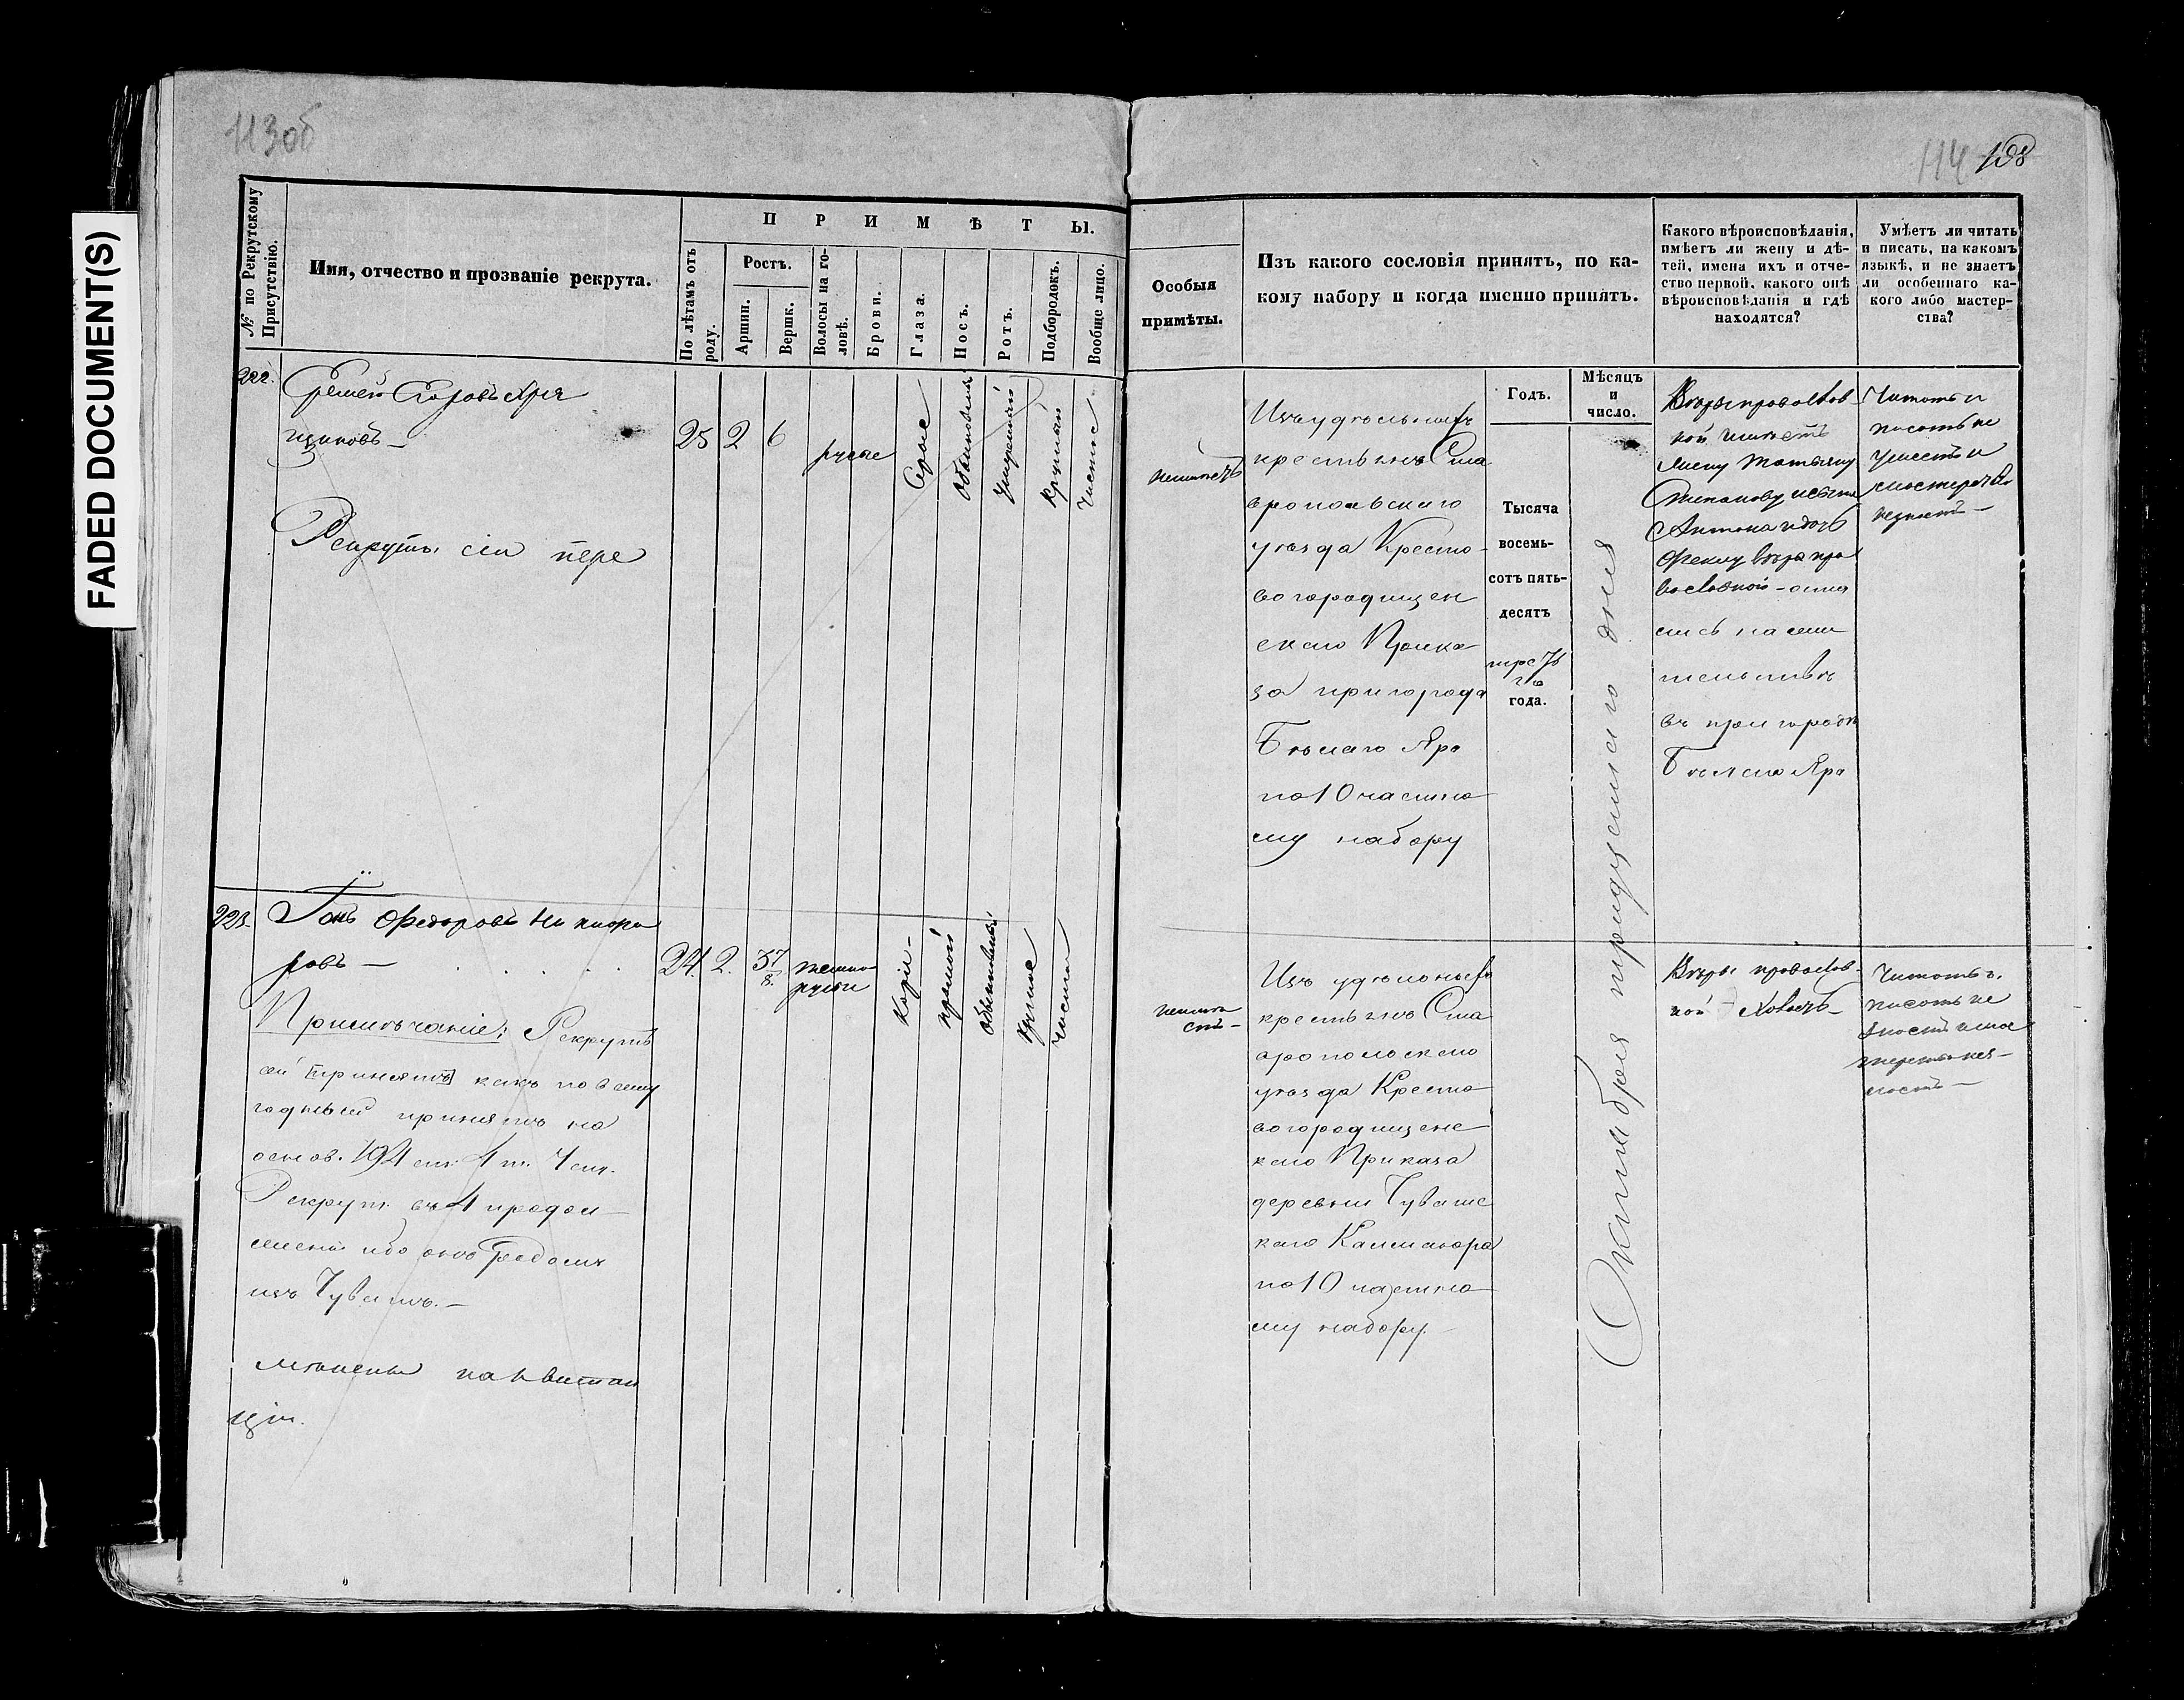 FADED DOCUMENT(S)
113об
114 108
№ по Рекрутскому
Присутствію.
Имя, отчество и прозваніе рекрута.
ПРИМѢТЫ.
По лѣтамъ отъ
роду.
Ростъ.
Аршин.
Вершк.
Волосы на го-
ловѣ.
Брови.
Глаза.
Носъ.
Ротъ.
Подбородокъ.
Вообще лицо.
Особыя
примѣты.
Изъ какого сословія принятъ, по ка-
кому набору и когда именно принятъ.
Какого вѣроисповѣданія,
имѣетъ ли жену и дѣ-
тей, имена ихъ и отче-
ство первой, какого онѣ
вѣроисповѣданія и гдѣ
находятся?
Умѣетъ ли читать
и писать, на какомъ
языкѣ, и не знаетъ
ли особеннаго ка-
кого либо мастер-
ства?
222.
Семен
щиковъ —
Рекрутъ сей пере
25 2 6
русые
Серые
обыкновен
умеренный
круглый
чистое
неимеетъ
Изъ удѣльныхъ
крестьянъ Ста
вропольскаго
уѣзда Кресто-
вогородищен
скаго Прика
за пригорода
Бѣлаго Яра
по 10 частно
му набору
Годъ.
Тысяча
восемь-
сотъ пять-
десятъ
третьяго
года.
Мѣсяцъ
и
число.
Октября тридцатаго дня
Веры православ-
ной имеетъ
жену Татьяну
Степанову и сына
Антона и дочь
Феклу вера пра
вославной — оста
лись на жи
тельствѣ
въ пригородѣ
Бѣлаго Яра
Читать и
писать не
умеетъ и
мастерства
незнаетъ —
223.
Iонъ Федоровъ Никифо
ровъ —
Примѣчаніе: Рекрутъ
сей принятъ какъ по всему
годный принятъ на
основ. 194 ст. 4 т. 1 ст.
Рекрут. въ 4 продол-
женіи ибо онъ родомъ
изъ Чувашъ. —
мѣненъ на квитан
цію.
24. 2. 3 7/8.
темно-
русые
Каріи —
прямой
обыкновен.
круглое
чистое
неимѣ
етъ —
Изъ удѣльныхъ
крестьянъ Ста
вропольскаго
уѣзда Кресто
вогородищенс
каго Приказа
деревни Чувашс
каго Калмаюра
по 10 частно
му набору. —
Веры православ-
ной — Холостъ —
Читать и
писать не
знаетъ и мас
терства нез-
наетъ —